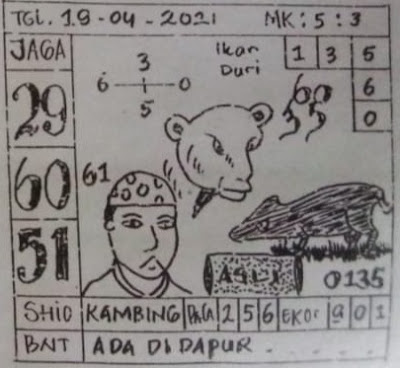 TGL. 19-04-2021 MK: 5 : 3
JAGA
29
60
51
3
6 0
5
Ikan
Duri
1 3 5
6
0
60
35
61
ASLI
0135
SHIO KAMBING 2 5 6 EKOR 9 0 1
BNT ADA DI DAPUR . . . . .